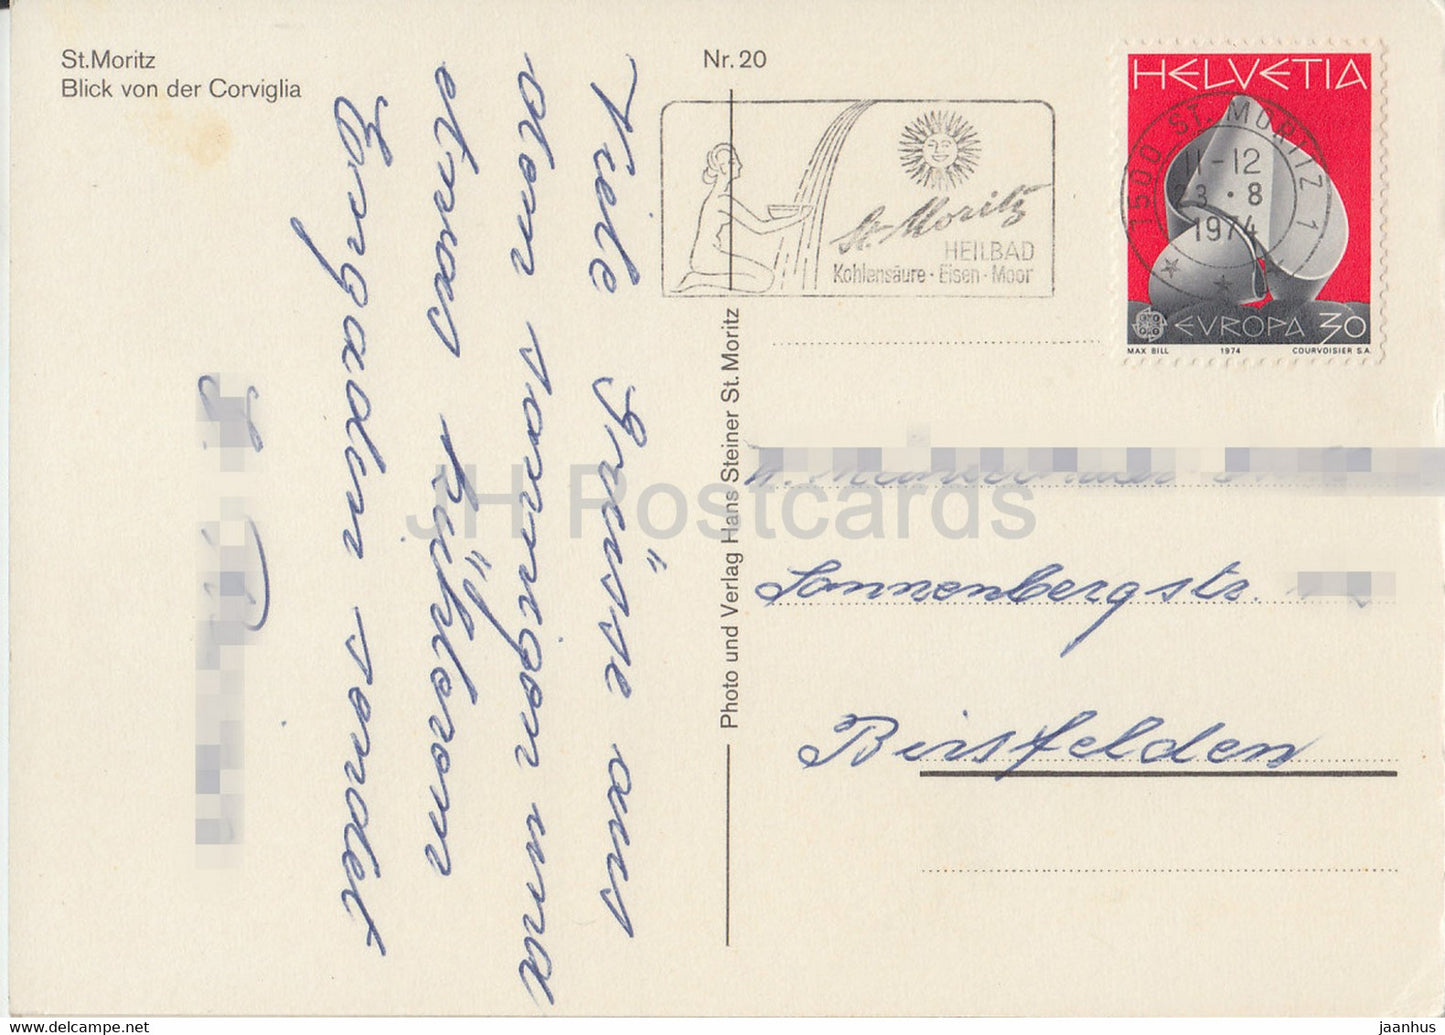 St.Moritz
Blick von der Corviglia
Nr. 20
Viele Grüsse aus
dem sonnigen und
etwas kühlerem
Engadin sendet
Photo und Verlag Hans Steiner St. Moritz
St. Moritz
HEILBAD
Kohlensäure · Eisen · Moor
HELVETIA
7500 ST. MORITZ 1
11-12
23.8
1974
EVROPA 30
MAX BILL 1974 COURVOISIER S.A.
Sonnenbergstr.
Birsfelden
JH Postcards
delcampe.net/en/store/jaanhus